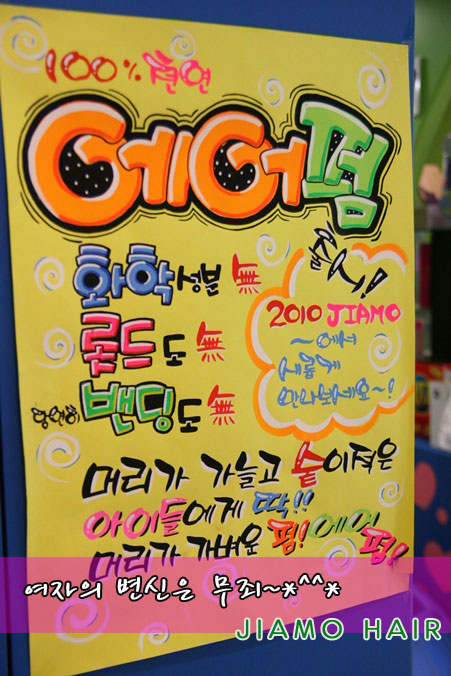 100% 천연
에어펌
출시!
화학성분 無
롯드도 無
당연히 밴딩도 無
2010 JIAMO
~에서
새롭게
만나보세요~!
머리가 가늘고 숱이적은
아이들에게 딱!!
머리가 가벼운 펌! 에어펌!
여자의 변신은 무죄~*^^*
JIAMO HAIR